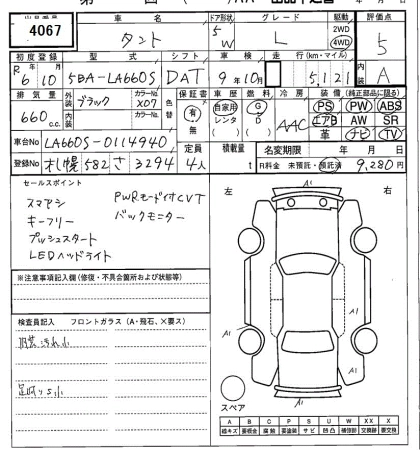 4067
車名 ドア形状 グレード 駆動 評価点
タント 5W L 2WD 4WD 5
初度登録 型式 シフト 車検 走行(km・マイル) 内装
R6 10 5BA-LA660S DAT 9年10月 5,121 A
排気量 外装 カラーNo. 色替 保証書 車歴 燃 冷房 装備(純正部品に限る)
660c.c. ブラック X07 有 無 自家用 レンタ ( ) G D ( ) AAC PS PW ABS
カラーNo. エアB AW SR
革 ナビ TV
車台No LA660S-0114940 定員 積載量 名変期限 年 月 日
登録No 札幌582さ3294 4人 t R料金 未預託・預託済 9,280円
セールスポイント
スマアシ PWRモード付CVT
キーフリー バックモニター
プッシュスタート
LEDヘッドライト
※注意事項記入欄(修復・不具合箇所および状態等)
検査員記入 フロントガラス(A・飛石、×要ス)
内装汚れ小
足回りS小
左 右
A1
A1
A1
A1
スペア
A B C P S U W X XX
線キズ 要板金 腐蝕 要塗装 サビ 凹凸 補修跡 交換跡 要交換